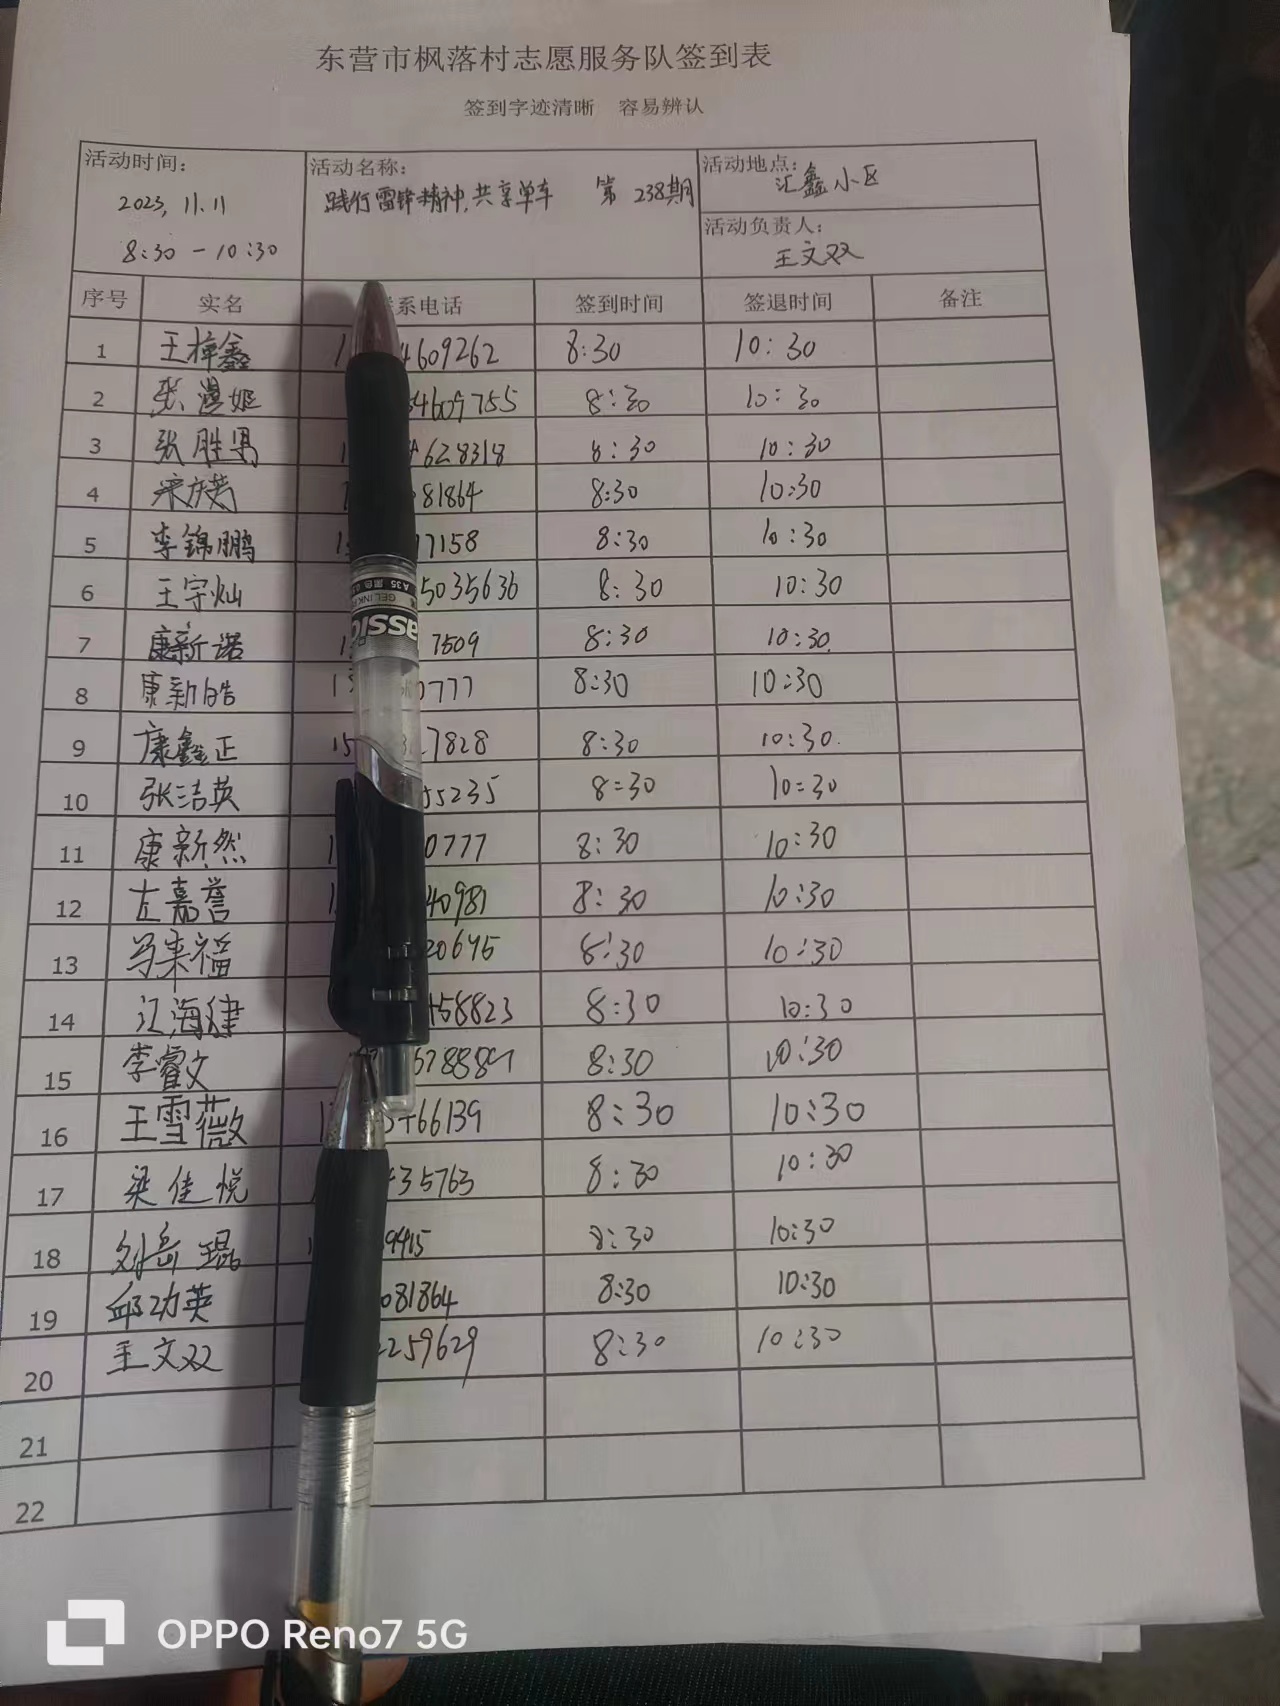 东营市枫落村志愿服务队签到表
签到字迹清晰 容易辨认
活动时间: 活动名称: 活动地点: 汇鑫小区
2023, 11.11 践行雷锋精神,共享单车 第 238期
8:30 - 10:30 活动负责人: 王文双
序号 实名 系电话 签到时间 签退时间 备注
1 王梓鑫 1 4609262 8:30 10:30
2 张漫姬 54609755 8:30 10:30
3 张胜男 1 4628318 8:30 10:30
4 宋庆芳 1 081864 8:30 10:30
5 李锦鹏 15 17158 8:30 10:30
6 王宇灿 5035636 8:30 10:30
7 康新诺 1 7509 8:30 10:30
8 康新皓 13 0777 8:30 10:30
9 康鑫正 15 7828 8:30 10:30
10 张洁英 55235 8:30 10:30
11 康新然 1 0777 8:30 10:30
12 左嘉誉 1 40981 8:30 10:30
13 马来福 20695 8:30 10:30
14 江海健 58823 8:30 10:30
15 李睿文 8:30 10:30
16 王雪薇 1 66139 8:30 10:30
17 梁佳悦 35763 8:30 10:30
18 刘岳琨 9415 8:30 10:30
19 邱功英 081864 8:30 10:30
20 王文双 2259629 8:30 10:30
21
22
A35
GEL INK
assic
OPPO Reno7 5G